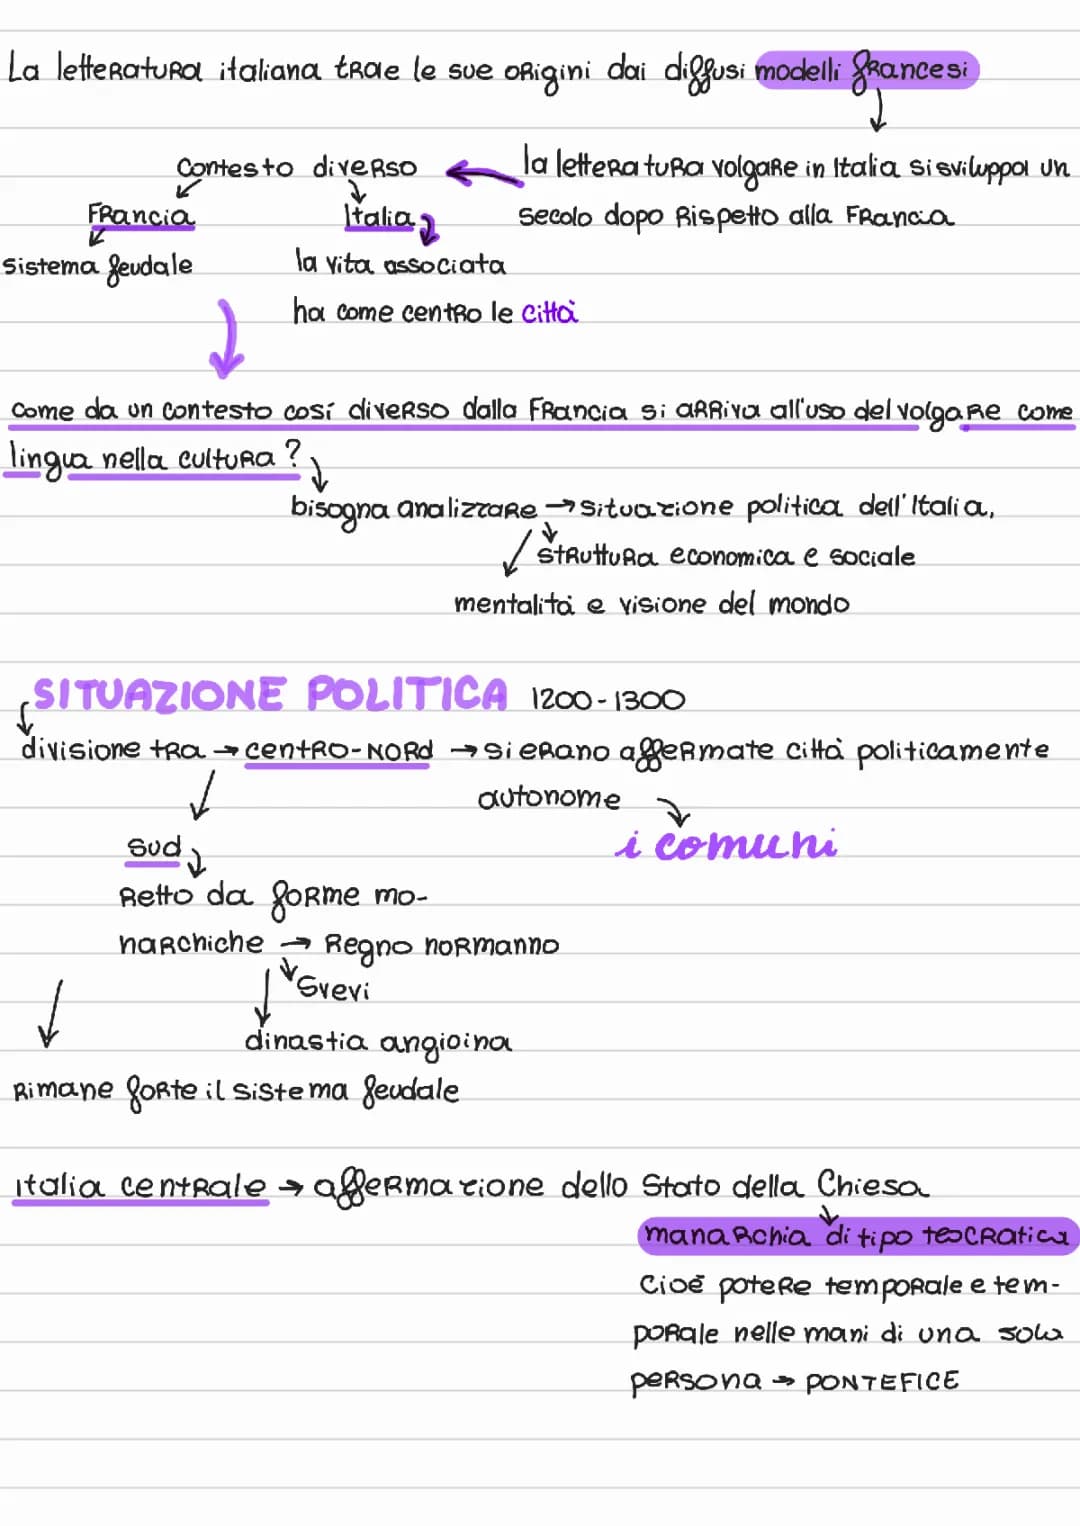 La letteratura italiana trae le sue origini dai diffusi modelli francesi
contesto diverso
la letteratura volgare in Italia si sviluppa un
Francia
Italia
secolo dopo rispetto alla Francia
sistema feudale
la vita associata
ha come centro le città
come da un contesto così diverso dalla Francia si arriva all'uso del volgare come
lingua nella cultura?
bisogna analizzare → situazione politica dell'Italia,
struttura economica e sociale
mentalità e visione del mondo
SITUAZIONE POLITICA 1200-1300
divisione tra → centro-nord → si erano affermate città politicamente
autonome
i comuni
sud
retto da forme mo-
narchiche → Regno normanno
Svevi
dinastia angioina
rimane forte il sistema feudale
italia centrale → affermazione dello Stato della Chiesa
manarchia di tipo teocratica
cioè potere temporale e tem-
porale nelle mani di una sola
persona → PONTEFICE